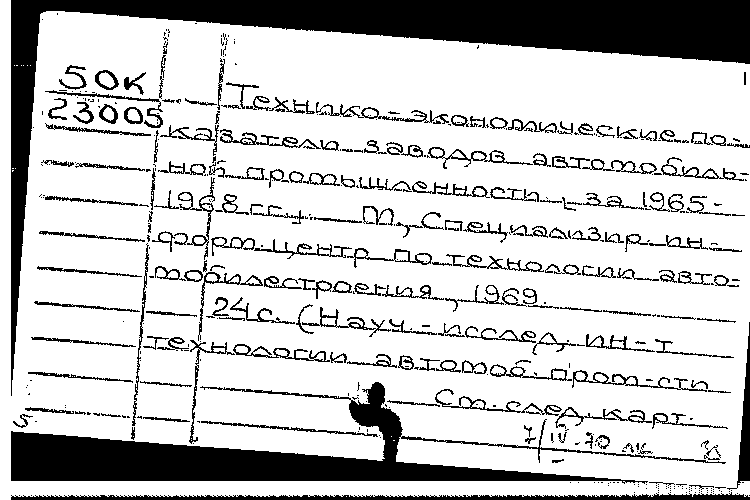 50к
23005
Технико-экономические по-
казатели заводов автомобиль-
ной промышленности [за 1965-
1968 гг.]. М., Специализир. ин-
форм. центр по технологии авто-
мобилестроения, 1969.
24 с. (Науч.-исслед. ин-т
технологии автомоб. пром-сти
См. след. карт.
7/IV-70